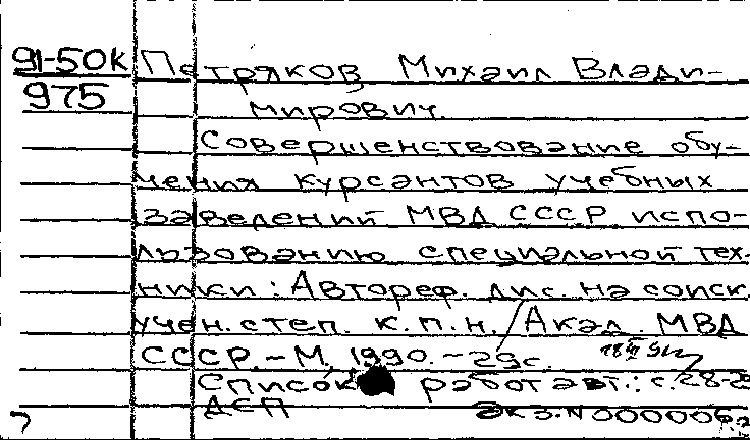 91-50к Петряков, Михаил Влади-
975 мирович.
Совершенствование обу-
чения курсантов учебных
заведений МВД СССР испо-
льзованию специальной тех-
ники: Автореф. дис. на соиск.
учен. степ. к.п.н. / Акад. МВД
СССР. - М, 1990. - 29с.
Список работ авт.: с. 28-2
ДСП Экз. N 000006